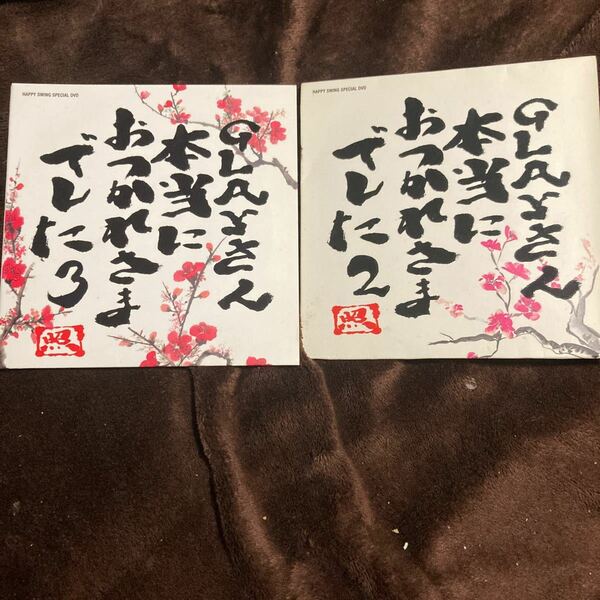 HAPPY SWING SPECIAL DVD
GLAYさん
本当に
おつかれさま
でした3
照
HAPPY SWING SPECIAL DVD
GLAYさん
本当に
おつかれさま
でした2
照